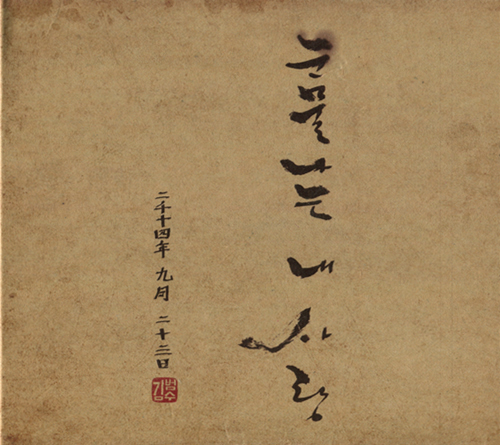 눈물나는 내 사랑
二千十四年 九月 二十二日
김범수